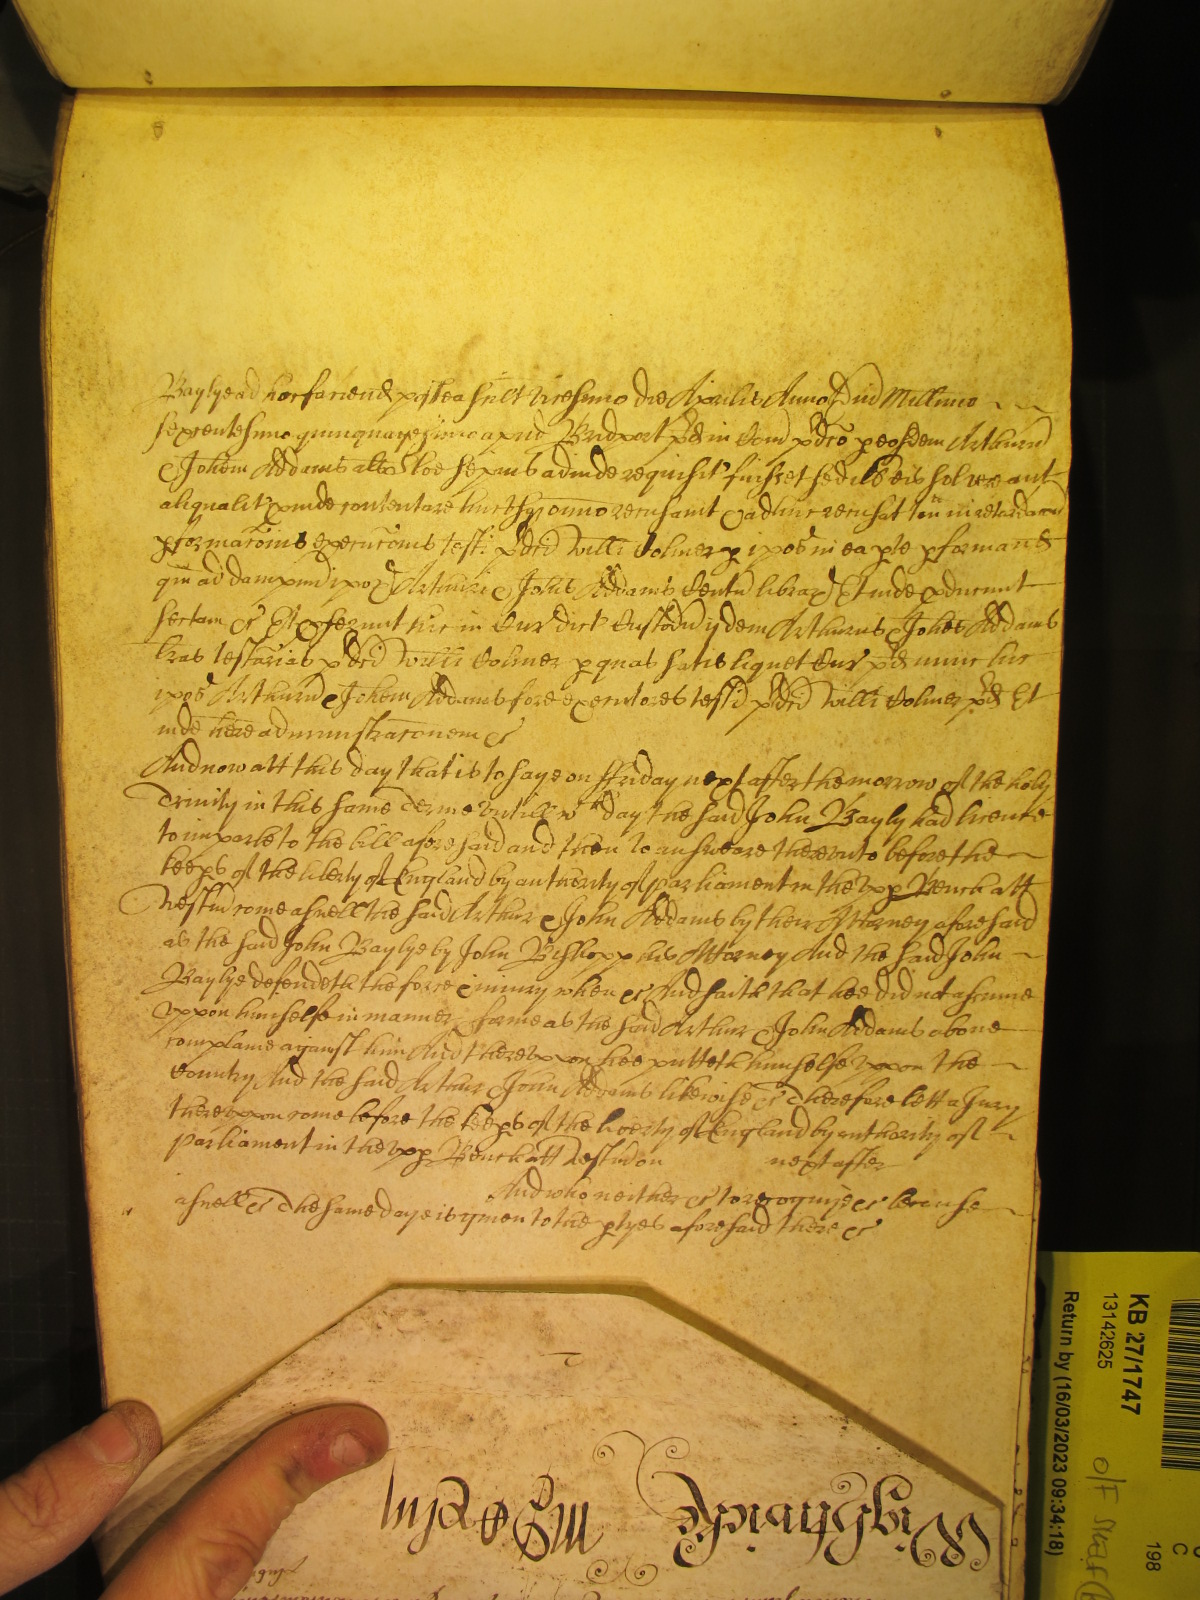 Baylye ad hoc faciend postea scilt vicesimo die Aprilis Anno Dni Millimo
sexcentesimo quinquagesimo apud Bridport pd in Com pdco p eosdem Arthurū
& Johem Addams sepius adinde requisit fuisset sed ill eis solvere aut
aliqualit pinde contentare hucusq omno recusavit & adhuc recusat in retardacoem
pformacois execucois testi pdci Willi Colmer p ipos in ea pte pformand
qm ad dampnū ipoꝝ Arthuri & Johis Addams Centū librarꝝ Et inde pducunt
sectam &c Et pferunt hic in Cur dict Custodū ijdem Arthurus & Johes Addams
lras testarias pdci Willi Colmer p quas satis liquet Cur pd nunc hic
ipos Arthurū & Johem Addams fore executores testi pdci Willi Colmer pd Et
inde here administracionem &c
And now att this day that is to saye on ffriday next after the morrow of the holy
Trinity in this same Terme untill wch day the said John Bayly had licence
to imparle to the bill aforesaid and then to answeare thereunto before the
keeps of the liberty of England by authority of parliament in the upp Bench att
Westm come aswell the said Arthur & John Addams by their Attorney aforesaid
as the said John Baylye by John Bishopp his Attorney And the said John
Baylye defendeth the force & iniury when &c And saith that hee did not assume
uppon himselfe in manner & forme as the said Arthur & John Addams above
complaine against him And thereuppon hee putteth himselfe uppon the
Country And the said Arthur & John Addams likewise &c Therefore lett a Jury
thereuppon come before the keeps of the liberty of England by authority of
parliament in the upp Bench att Westm on next after
And who neither &c to recognize &c because
aswell &c The same daye is given to the ptyes aforesaid there &c
KB 27/1747
13142625
Return by (16/03/2023 09:34:18)
198
C
O/F Shelf